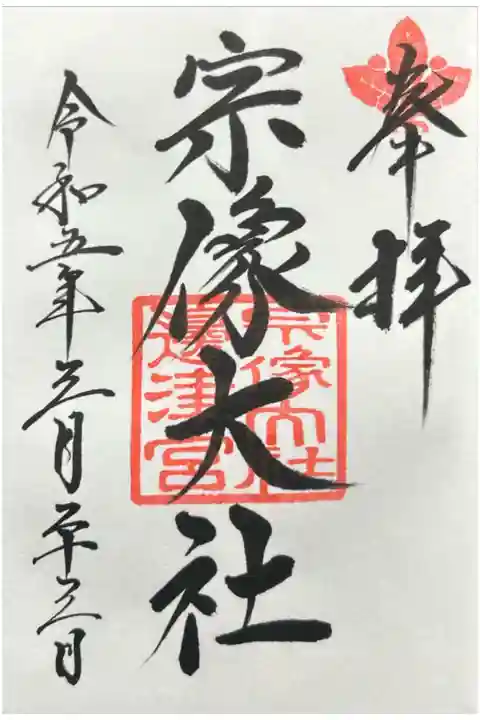 奉拝
宗像大社
宗像大社
邊津宮
令和五年三月二十三日